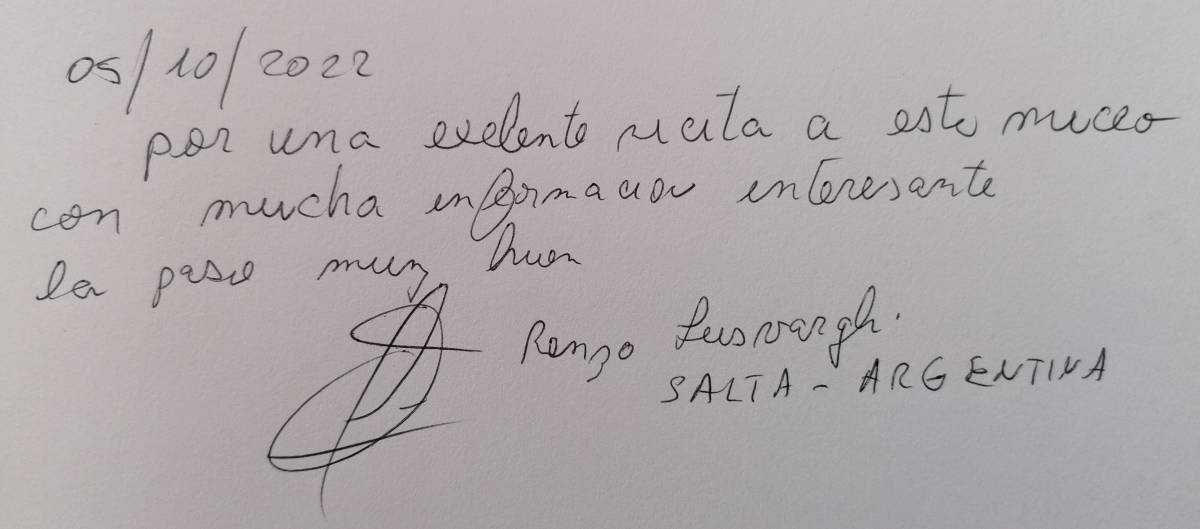 05/10/2022
por una exelente vicita a este muceo
con mucha informacion interesante
la pase muy buen
Renzo Lusvargh.
SALTA - ARGENTINA